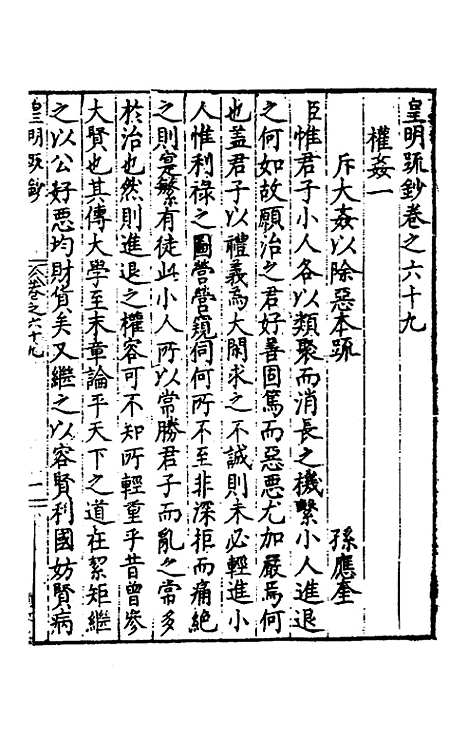 皇明疏鈔卷之六十九
權姦一
斥大姦以除惡本疏 孫應奎
臣惟君子小人各以類聚而消長之機繫小人進退
之何如故願治之君好善固篤而惡惡尤加嚴焉何
也盖君子以禮義為大閑求之不誠則未必輕進小
人惟利祿之圖營營窺伺何所不至非深拒而痛絕
之則寔繁有徒此小人所以常勝君子而亂之常多
於治也然則進退之權容可不知所輕重乎昔曾參
大賢也其傳大學至末章論平天下之道在絜矩繼
之以公好惡均財貨矣又繼之以容賢利國妨賢病
皇明疏鈔 卷之六十九 一